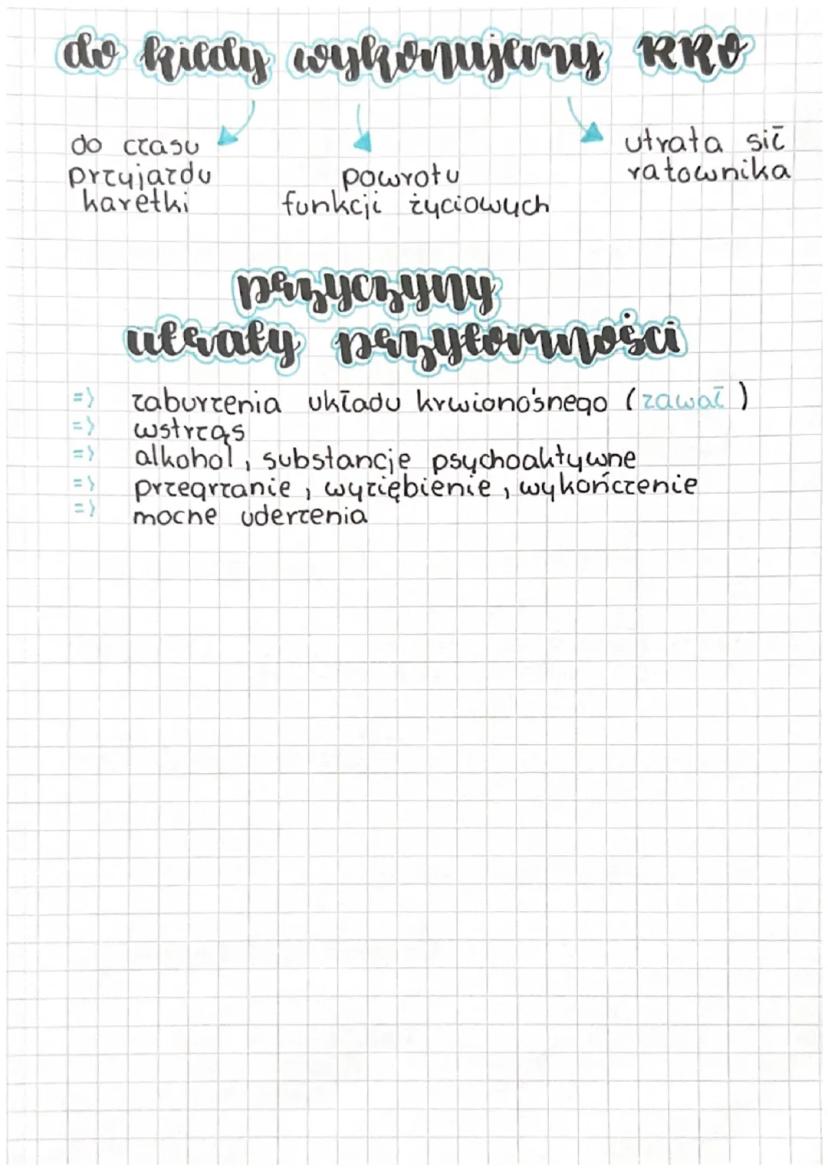 do kiedy wykonujemy RKO
do czasu
przyjazdu
karetki
powrotu
funkcji życiowych
utrata sił
ratownika
przyczyny
utraty przytomności
=> zaburzenia układu krwionośnego (zawał)
=> wstrząs
=> alkohol, substancje psychoaktywne
=> przegrzanie, wyziębienie, wykończenie
=> mocne uderzenia